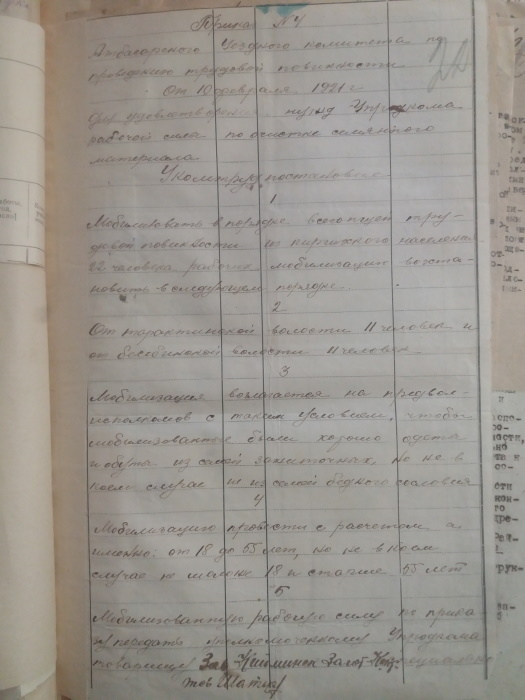 Приказ №4
Атбасарского Уездного комитета по
проведению трудовой повинности
От 10 февраля 1921 г
Для удовлетворения нужд Упродкома
рабочей сила по очистке семянного
материала
Укомтруд постановил
1
Мобилизовать в порядке всеобщей тру-
довой повинности из киргизского населения
22 человека рабочих мобилизацию
в следующем порядке.
2
От тарактинской волости 11 человек и
от волости 11 человек
3
Мобилизация возлагается на предвол-
исполкомов с таким условием, чтобы
мобилизованные были хорошо одеты
и обуты из самой зажиточных, но не в
коем случае не из самой бедного сословия
4
Мобилизацию провести с расчетом а
именно: от 18 до 55 лет, но не в коем
случае не 18 и старше 55 лет
5
Мобилизованную рабочую силу по прика-
зу передать Упродкома
товарищу Заг
тов